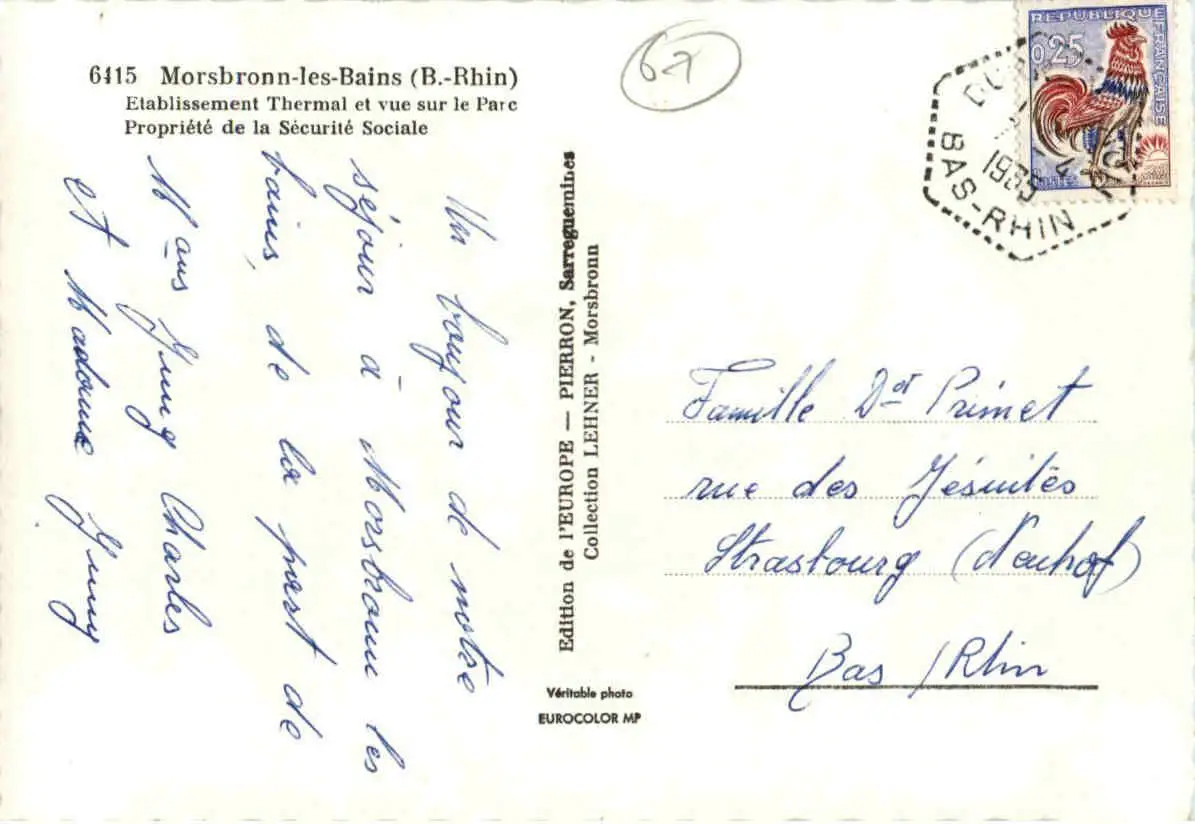 6415 Morsbronn-les-Bains (B.-Rhin)
Etablissement Thermal et vue sur le Parc
Propriété de la Sécurité Sociale
67
REPUBLIQUE FRANÇAISE
0,25
BAS-RHIN
Un bonjour de notre
séjour à Morsbronn les
bains, de la part de
Jung Charles
et Madame Jung
Edition de l'EUROPE — PIERRON, Sarreguemines
Collection LEHNER - Morsbronn
Véritable photo
EUROCOLOR MP
Famille Dst Primet
rue des Jésuites
Strasbourg (Neuhof)
Bas / Rhin